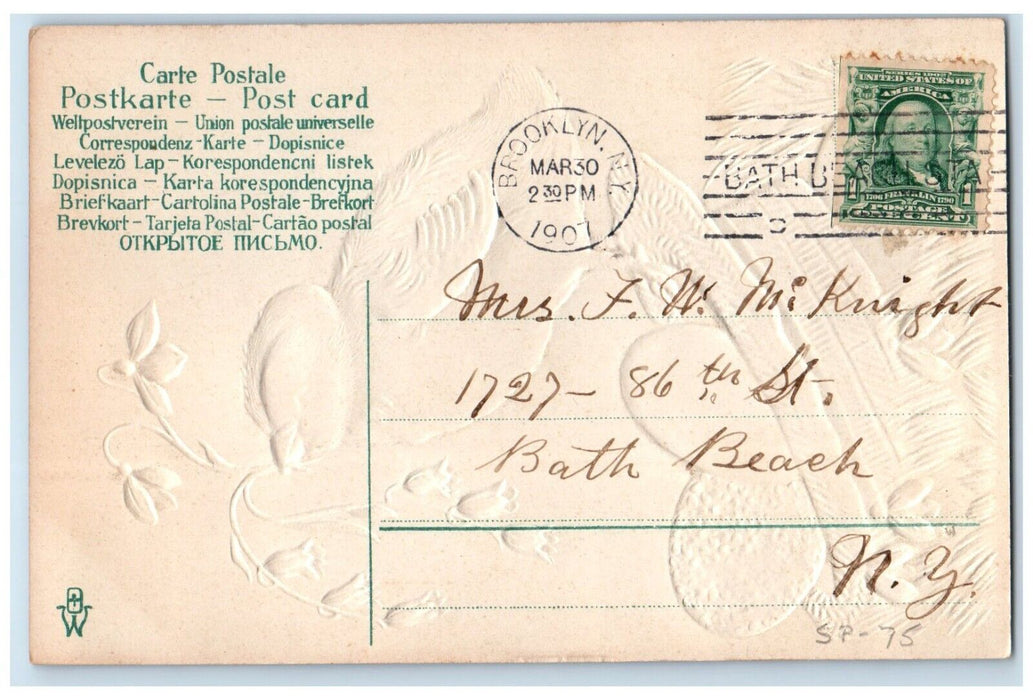 Carte Postale
Postkarte — Post card
Weltpostverein — Union postale universelle
Correspondenz-Karte — Dopisnice
Levelező Lap — Korespondencni listek
Dopisnica — Karta korespondencyjna
Briefkaart-Cartolina Postale-Brefkort
Brevkort — Tarjeta Postal-Cartão postal
ОТКРЫТОЕ ПИСЬМО.
BROOKLYN. N.Y.
MAR 30
2 30 PM
1907
BATH
SERIES 1902
UNITED STATES OF
AMERICA
1706 FRANKLIN 1790
POSTAGE
1 ONE CENT 1
Mrs. F. W. McKnight
1727 - 86 th St.
Bath Beach
N. Y.
SP-75